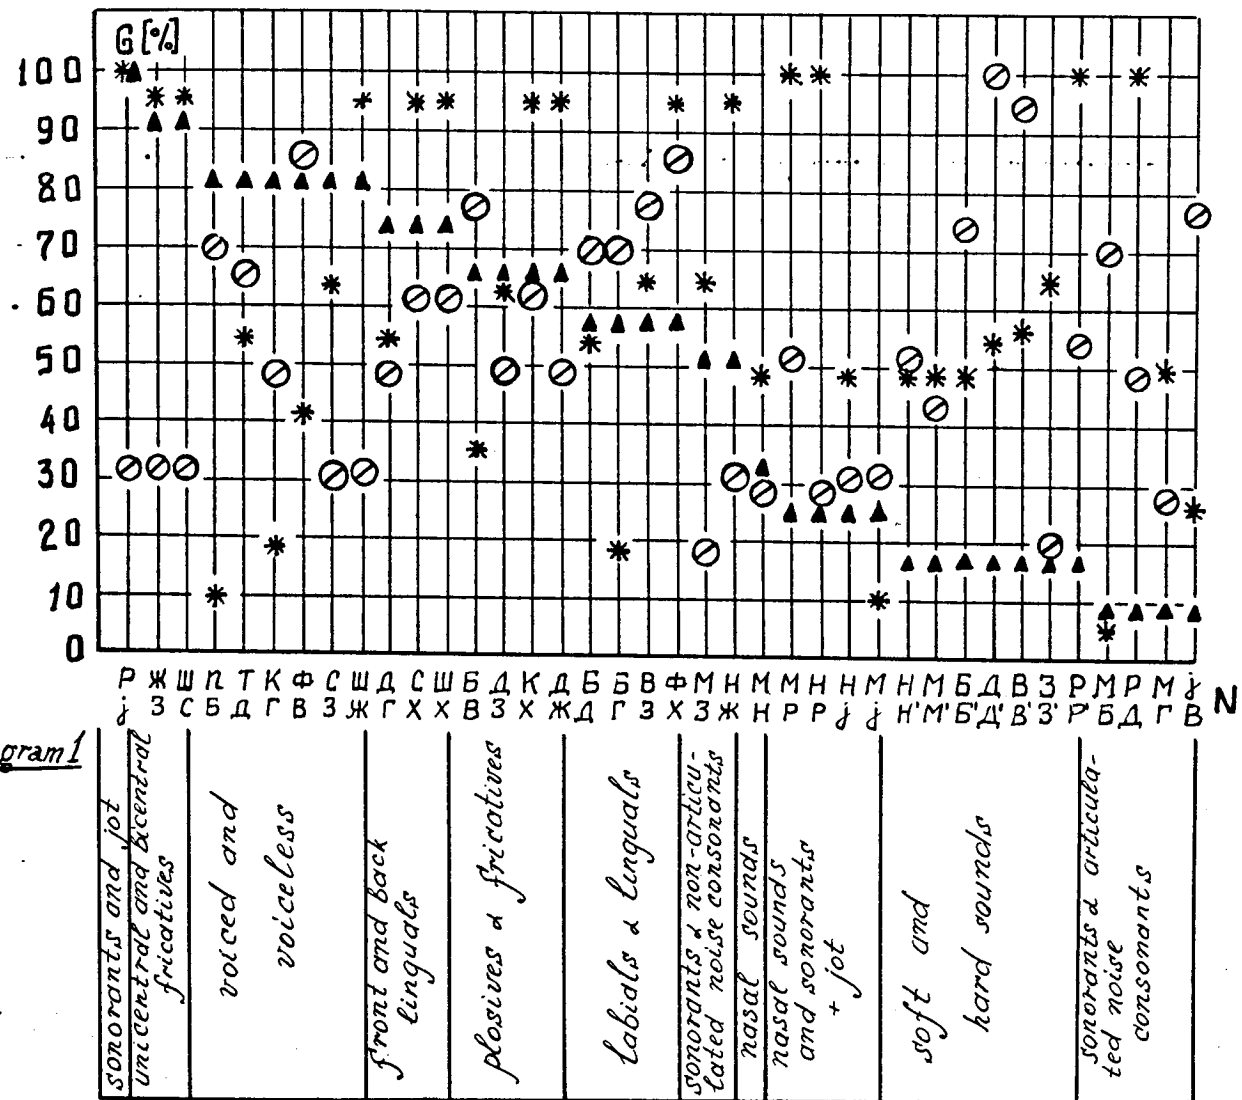 G [%]
100
90
80
70
60
50
40
30
20
10
0
Р Ж Ш П Т К Ф С Ш Д С Ш Б Д К Д Б Б В Ф М Н М М Н Н М Н М Б Д В З Р М Р М j
j З С Б Д Г В З Ж Г Х Х В З Х Ж Д Г З Х З Ж Н Р Р j j Н' М' Б' Д' В' З' Р' Б Д Г В
N
gram 1
sonorants and jot
unicentral and bicentral
fricatives
voiced and
voiceless
front and back
linguals
plosives & fricatives
labials & linguals
sonorants & non-articu-
lated noise consonants
nasal sounds
nasal sounds
and sonorants
+ jot
soft and
hard sounds
sonorants & articula-
ted noise
consonants